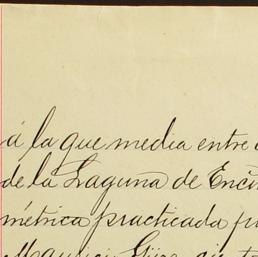 á la que media entre
de la Laguna de Enci
métrica practicada p